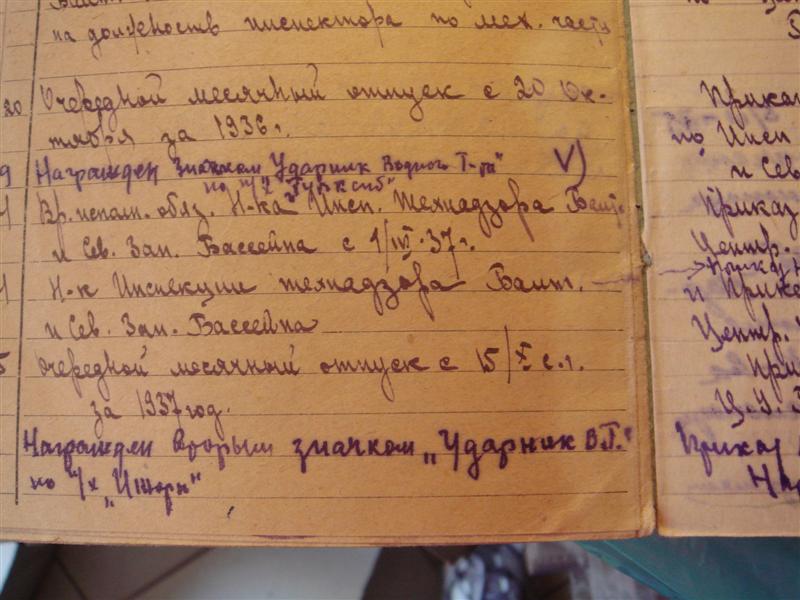 на должность инспектора по мех. части
20 Очередной месячный отпуск с 20 Ок-
тября за 1936 г.
9 Награжден значком Ударник Водного Т-та"
по "Турксиб"
Вр. исполн. обяз. Н-ка Инсп. Технадзора Балт.
и Сев. Зап. Бассейна с 1/III-37 г.
Н-к Инспекции технадзора Балт.
и Сев. Зап. Бассейна
5 Очередной месячный отпуск с 15/X с.г.
за 1937 год.
Награжден вторым значком „Ударник В.Т."
по п/х „Ижора"
по
Приказ
по Инсп
и Сев
Приказ
Центр.
Приказ
и Прика
Центр.
При
Ц.У.
Приказ